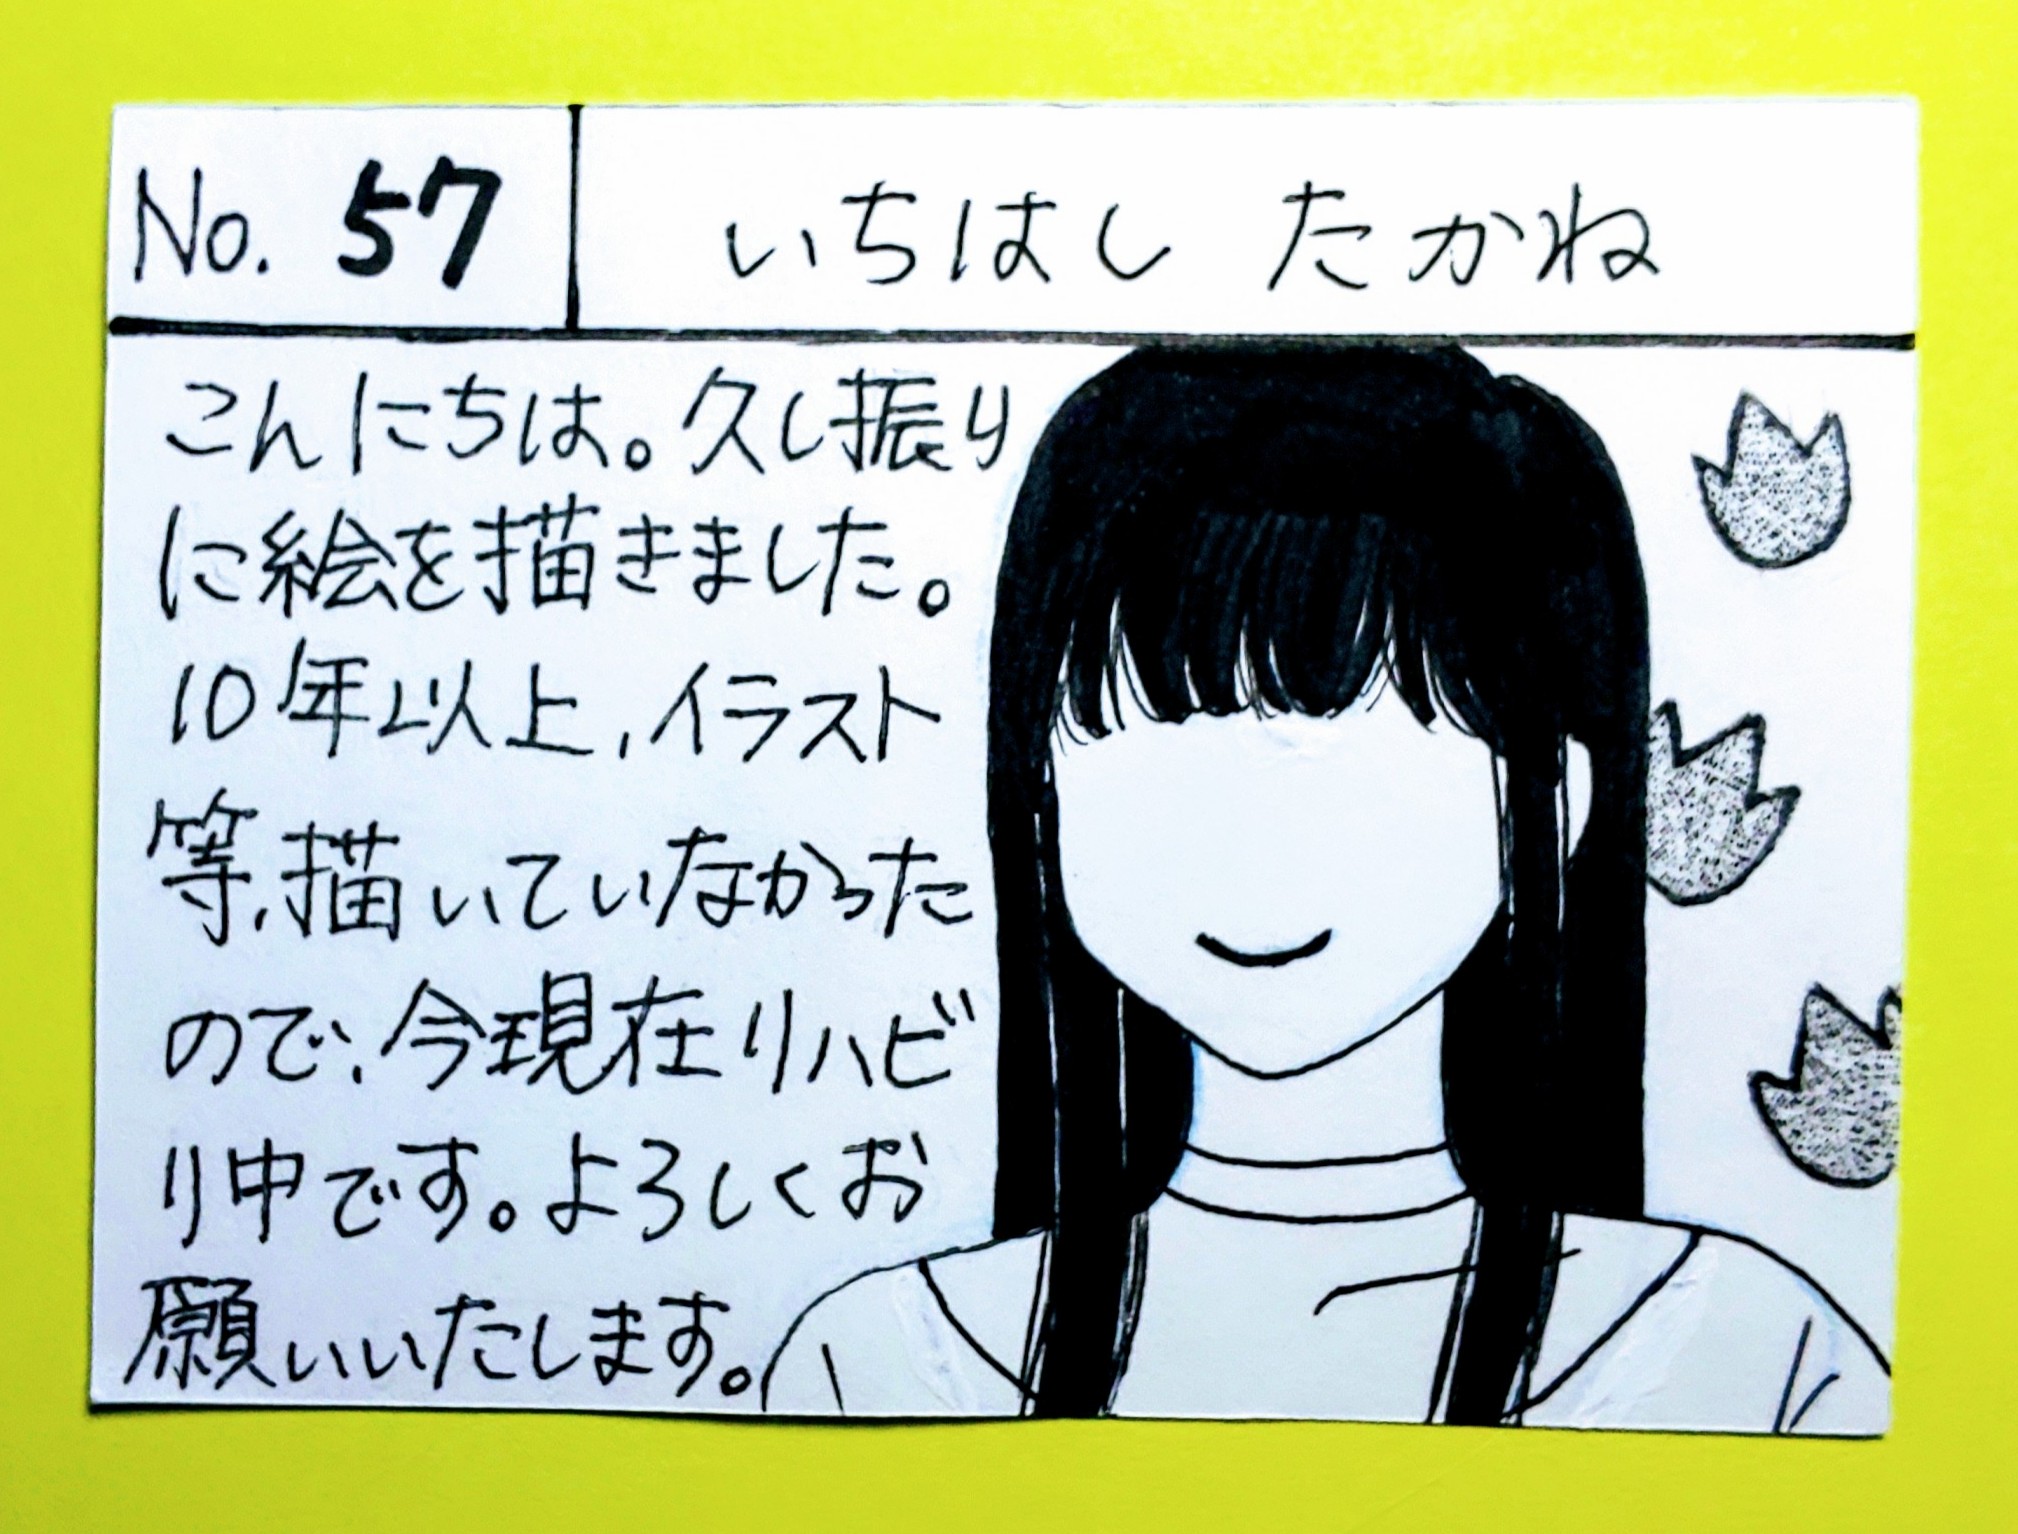 No. 57
いちはし たかね
こんにちは。久し振り
に絵を描きました。
10年以上、イラスト
等、描いていなかった
ので、今現在リハビ
リ中です。よろしくお
願いいたします。